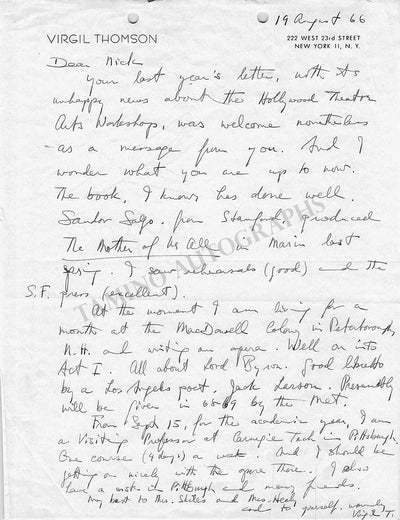 19 August 66
VIRGIL THOMSON
222 WEST 23rd STREET
NEW YORK 11, N. Y.
Dear Nick
Your last year's letter, with its
unhappy news about the Hollywood Theater
Arts Workshop, was welcome nonetheless
as a message from you. And I
wonder what you are up to now.
The book, I know, has done well.
Sandor Salgo, from Stanford, produced
The Mother of Us All in Marin last
spring. I saw rehearsals (good) and the
S.F. press (excellent).
At the moment I am living for a
month at the MacDowell Colony in Peterborough,
N.H. and writing an opera. Well on into
Act I. All about Lord Byron. Good libretto
by a Los Angeles poet, Jack Larson. Presumably
will be given in 68-69 by the Met.
From Sept 15, for the academic year, I am
a Visiting Professor at Carnegie Tech in Pittsburgh.
One course (4 days) a week. And I should be
getting on nicely with the opera there. I also
have a in Pittsburgh and many friends.
My best to Mrs. and Mrs. Healy
and to yourself. warmly
Virgil T.
TAMINO AUTOGRAPHS